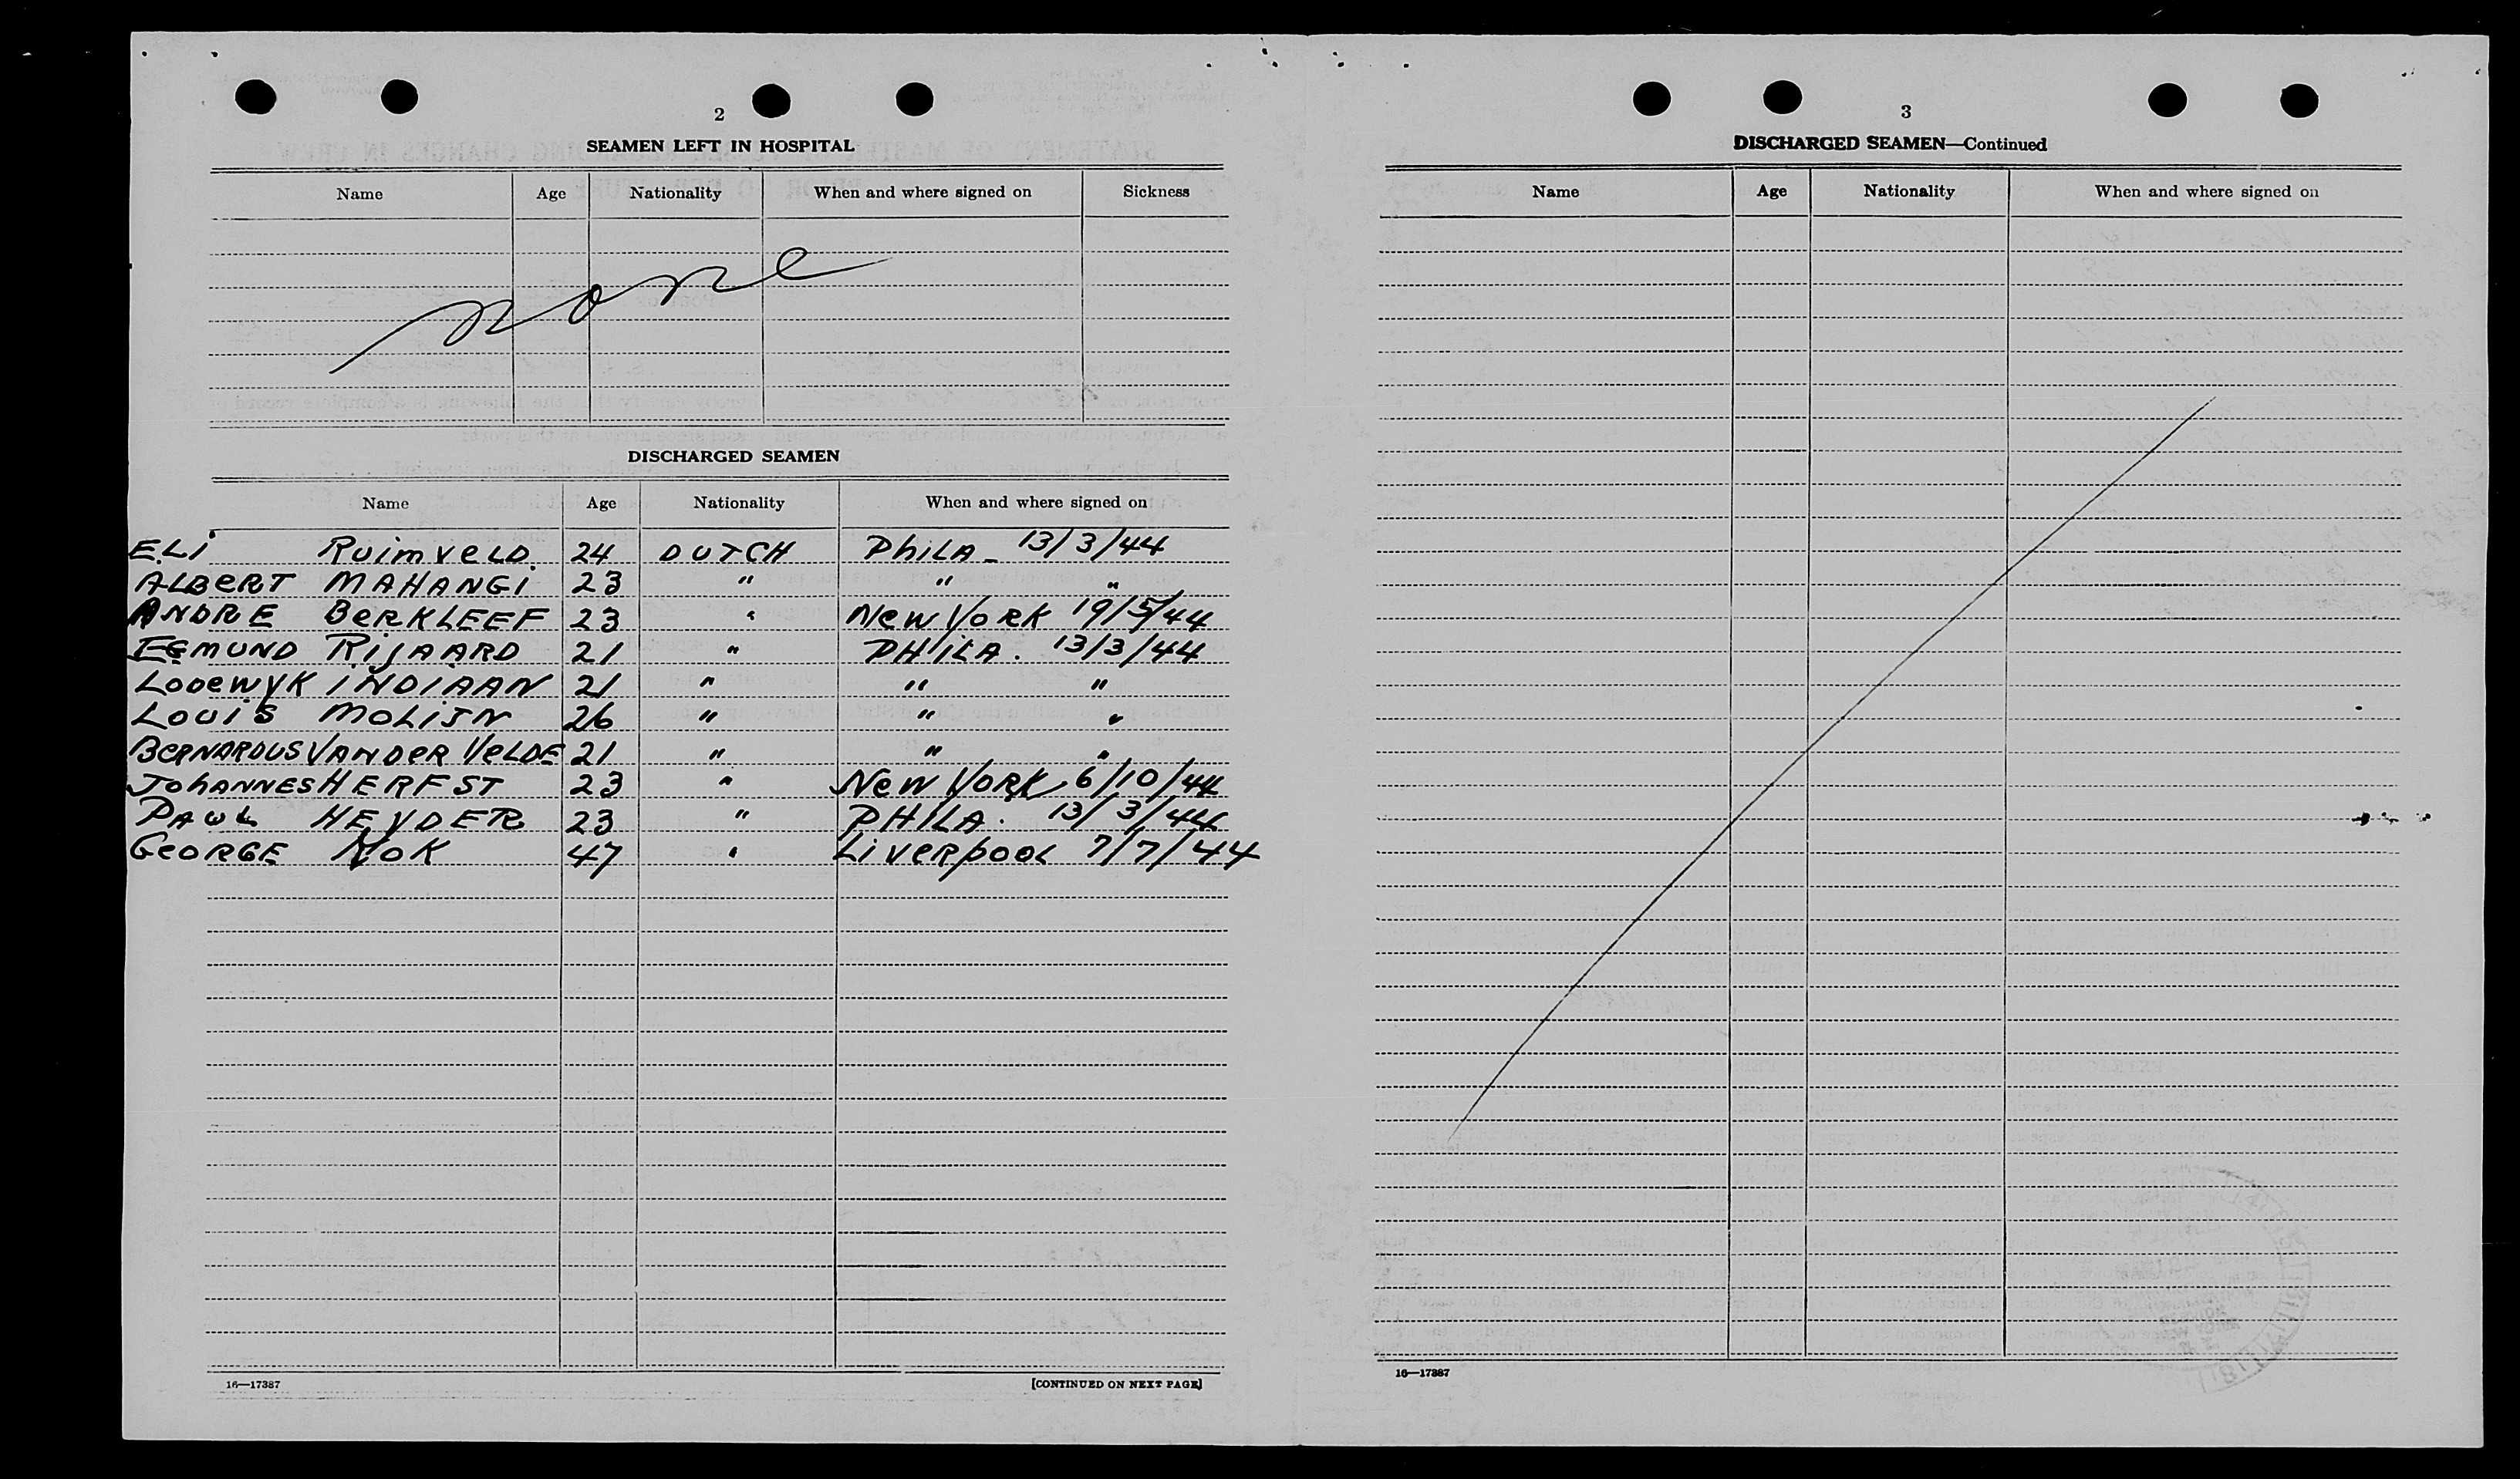 2
SEAMEN LEFT IN HOSPITAL
Name Age Nationality When and where signed on Sickness
none
DISCHARGED SEAMEN
Name Age Nationality When and where signed on
ELi RuimVeLD. 24 DUTCH PhiLA - 13/3/44
ALBeRT MAHANGi 23 " " "
ANDRE BeRKLEEF 23 " New York 19/5/44
EGMUND RiJAARD 21 " PHiLA. 13/3/44
LoDewyK iNDiAAN 21 " " "
Louis MoLiJN 26 " " "
BeRNARDUS VAN DeR VeLDE 21 " " "
JohANNES HERFST 23 " New YORK 6/10/44
PAUL HEYDER 23 " PHiLA. 13/3/44
GeORGE NOK 47 " LiVeRpooL 7/7/44
16—17387
[CONTINUED ON NEXT PAGE]
3
DISCHARGED SEAMEN—Continued
Name Age Nationality When and where signed on
16—17387